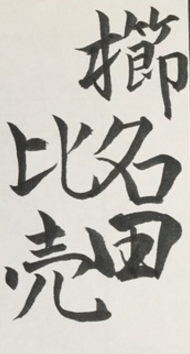 櫛名田
比売